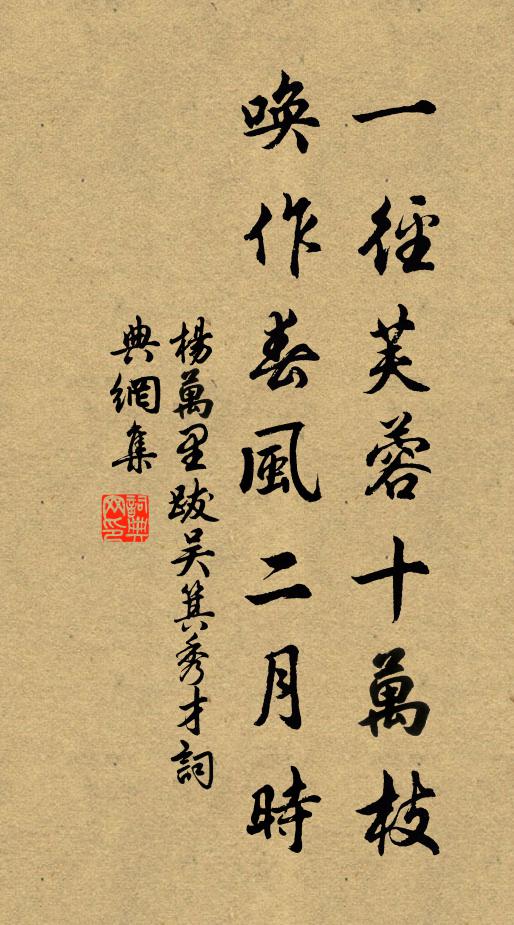 一徑芙蓉十萬枝
喚作春風二月時
楊萬里跋吴箕秀才詞
典網集
詞典網印